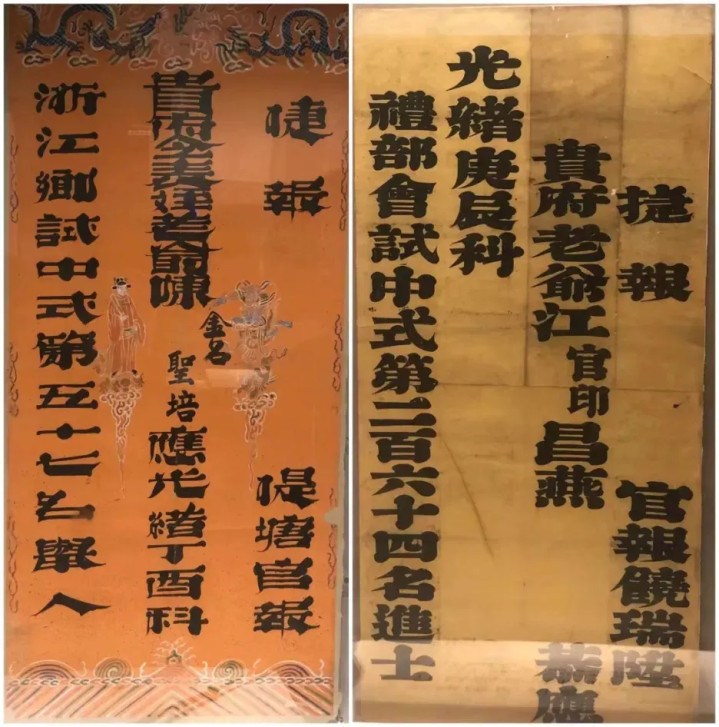 捷報 提塘官報
貴府令姪老爺陳 金名 聖培 應光緒丁酉科
浙江鄉試中式第五十七名舉人
捷報 官報饒瑞陞
貴府老爺江官印昌燕 恭應
光緒庚辰科
禮部會試中式第二百六十四名進士